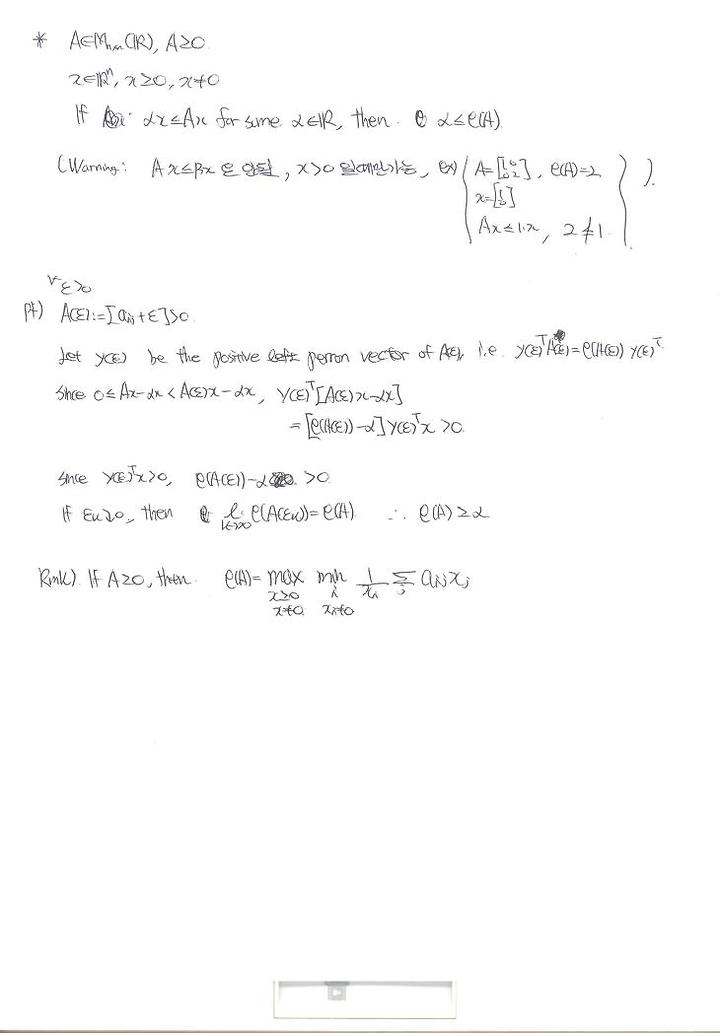 * A∈Mₙ,ₙ(ℝ), A≥0.
x∈ℝⁿ, x≥0, x≠0
If αx≤Ax for some α∈ℝ, then α≤ρ(A).
(Warning: Ax≤βx 은 안됨, x>0 일때만 가능, ex) { A=[1 0; 0 2], ρ(A)=2
x=[1; 0]
Ax≤1·x, 2≰1. } ).
∀ε>0
pf) A(ε):=[aᵢⱼ+ε]>0.
Let y(ε) be the positive left perron vector of A(ε), i.e. y(ε)ᵀA(ε)=ρ(A(ε)) y(ε)ᵀ.
Since 0≤Ax-αx<A(ε)x-αx, y(ε)ᵀ[A(ε)x-αx]
=[ρ(A(ε))-α]y(ε)ᵀx >0.
Since y(ε)ᵀx>0, ρ(A(ε))-α >0.
If εₖ↓0, then lim k→∞ ρ(A(εₖ))=ρ(A). ∴ ρ(A)≥α
Rmk) If A≥0, then ρ(A)= max min 1/xᵢ Σⱼ aᵢⱼxⱼ
x≥0 i
x≠0 xᵢ≠0